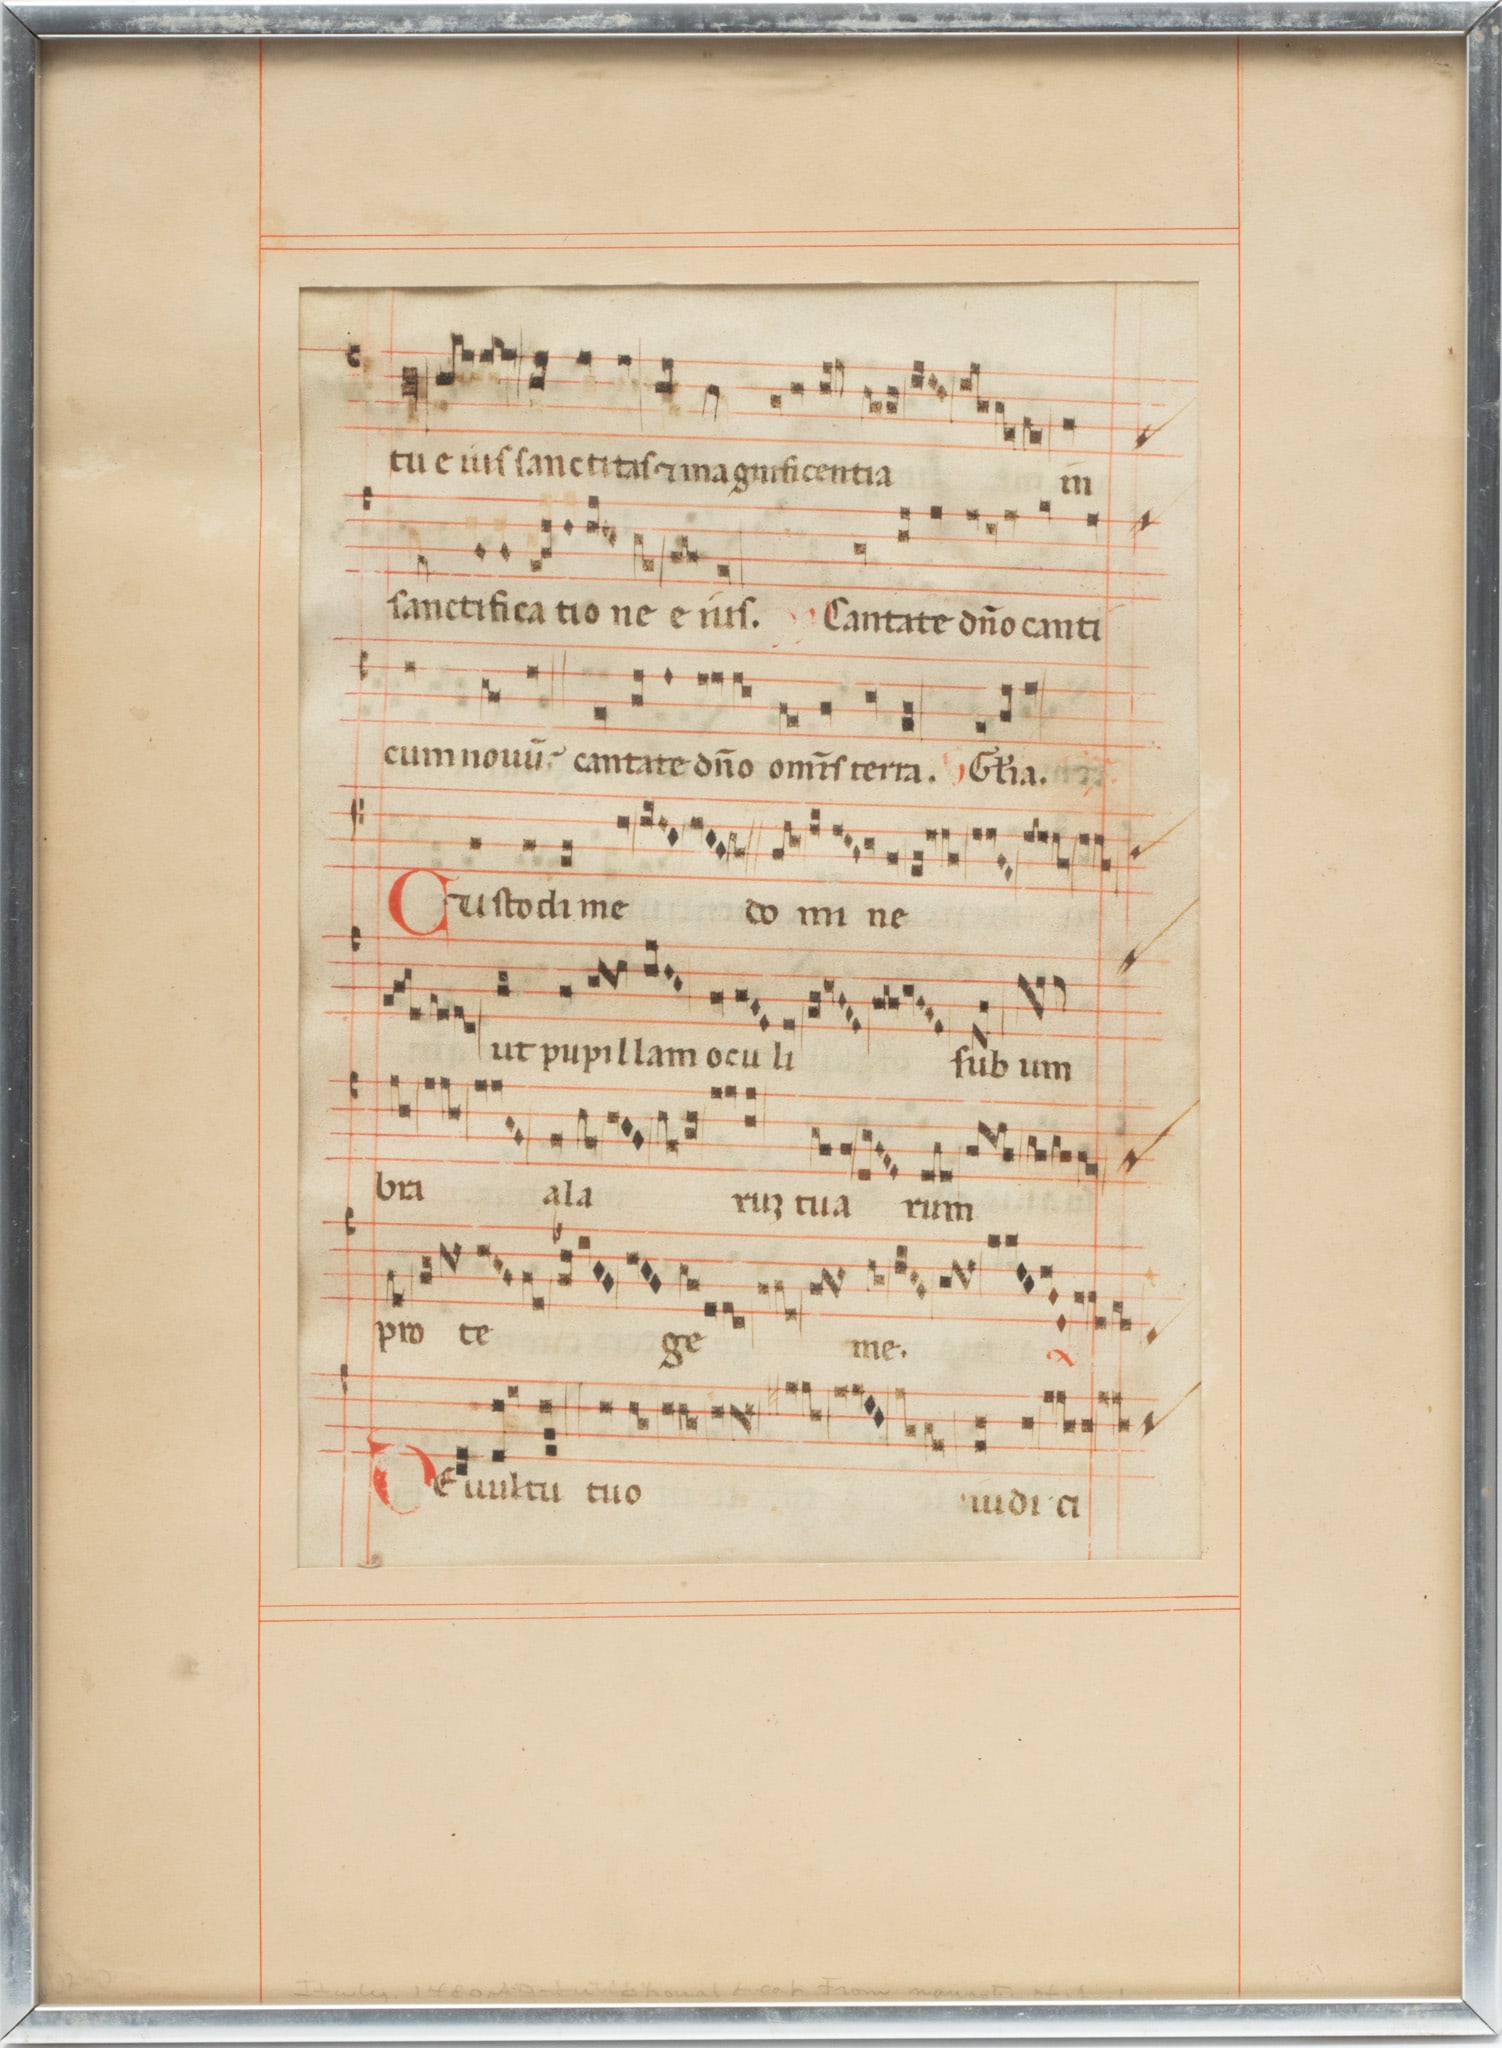 tu e ius sanctitas ⁊ magnificentia in
sanctifica tio ne e ius. Cantate dño canti
cum nouū. cantate dño omīs terra. Gła.
Custodi me do mi ne
ut pupillam ocu li sub um
bra ala ruꝫ tua rum
pro te ge me.
De uultu tuo iudi ci
Italy. 1480 AD